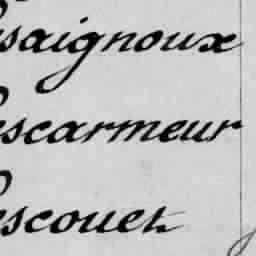 esaignoux
escarmeur
escouet